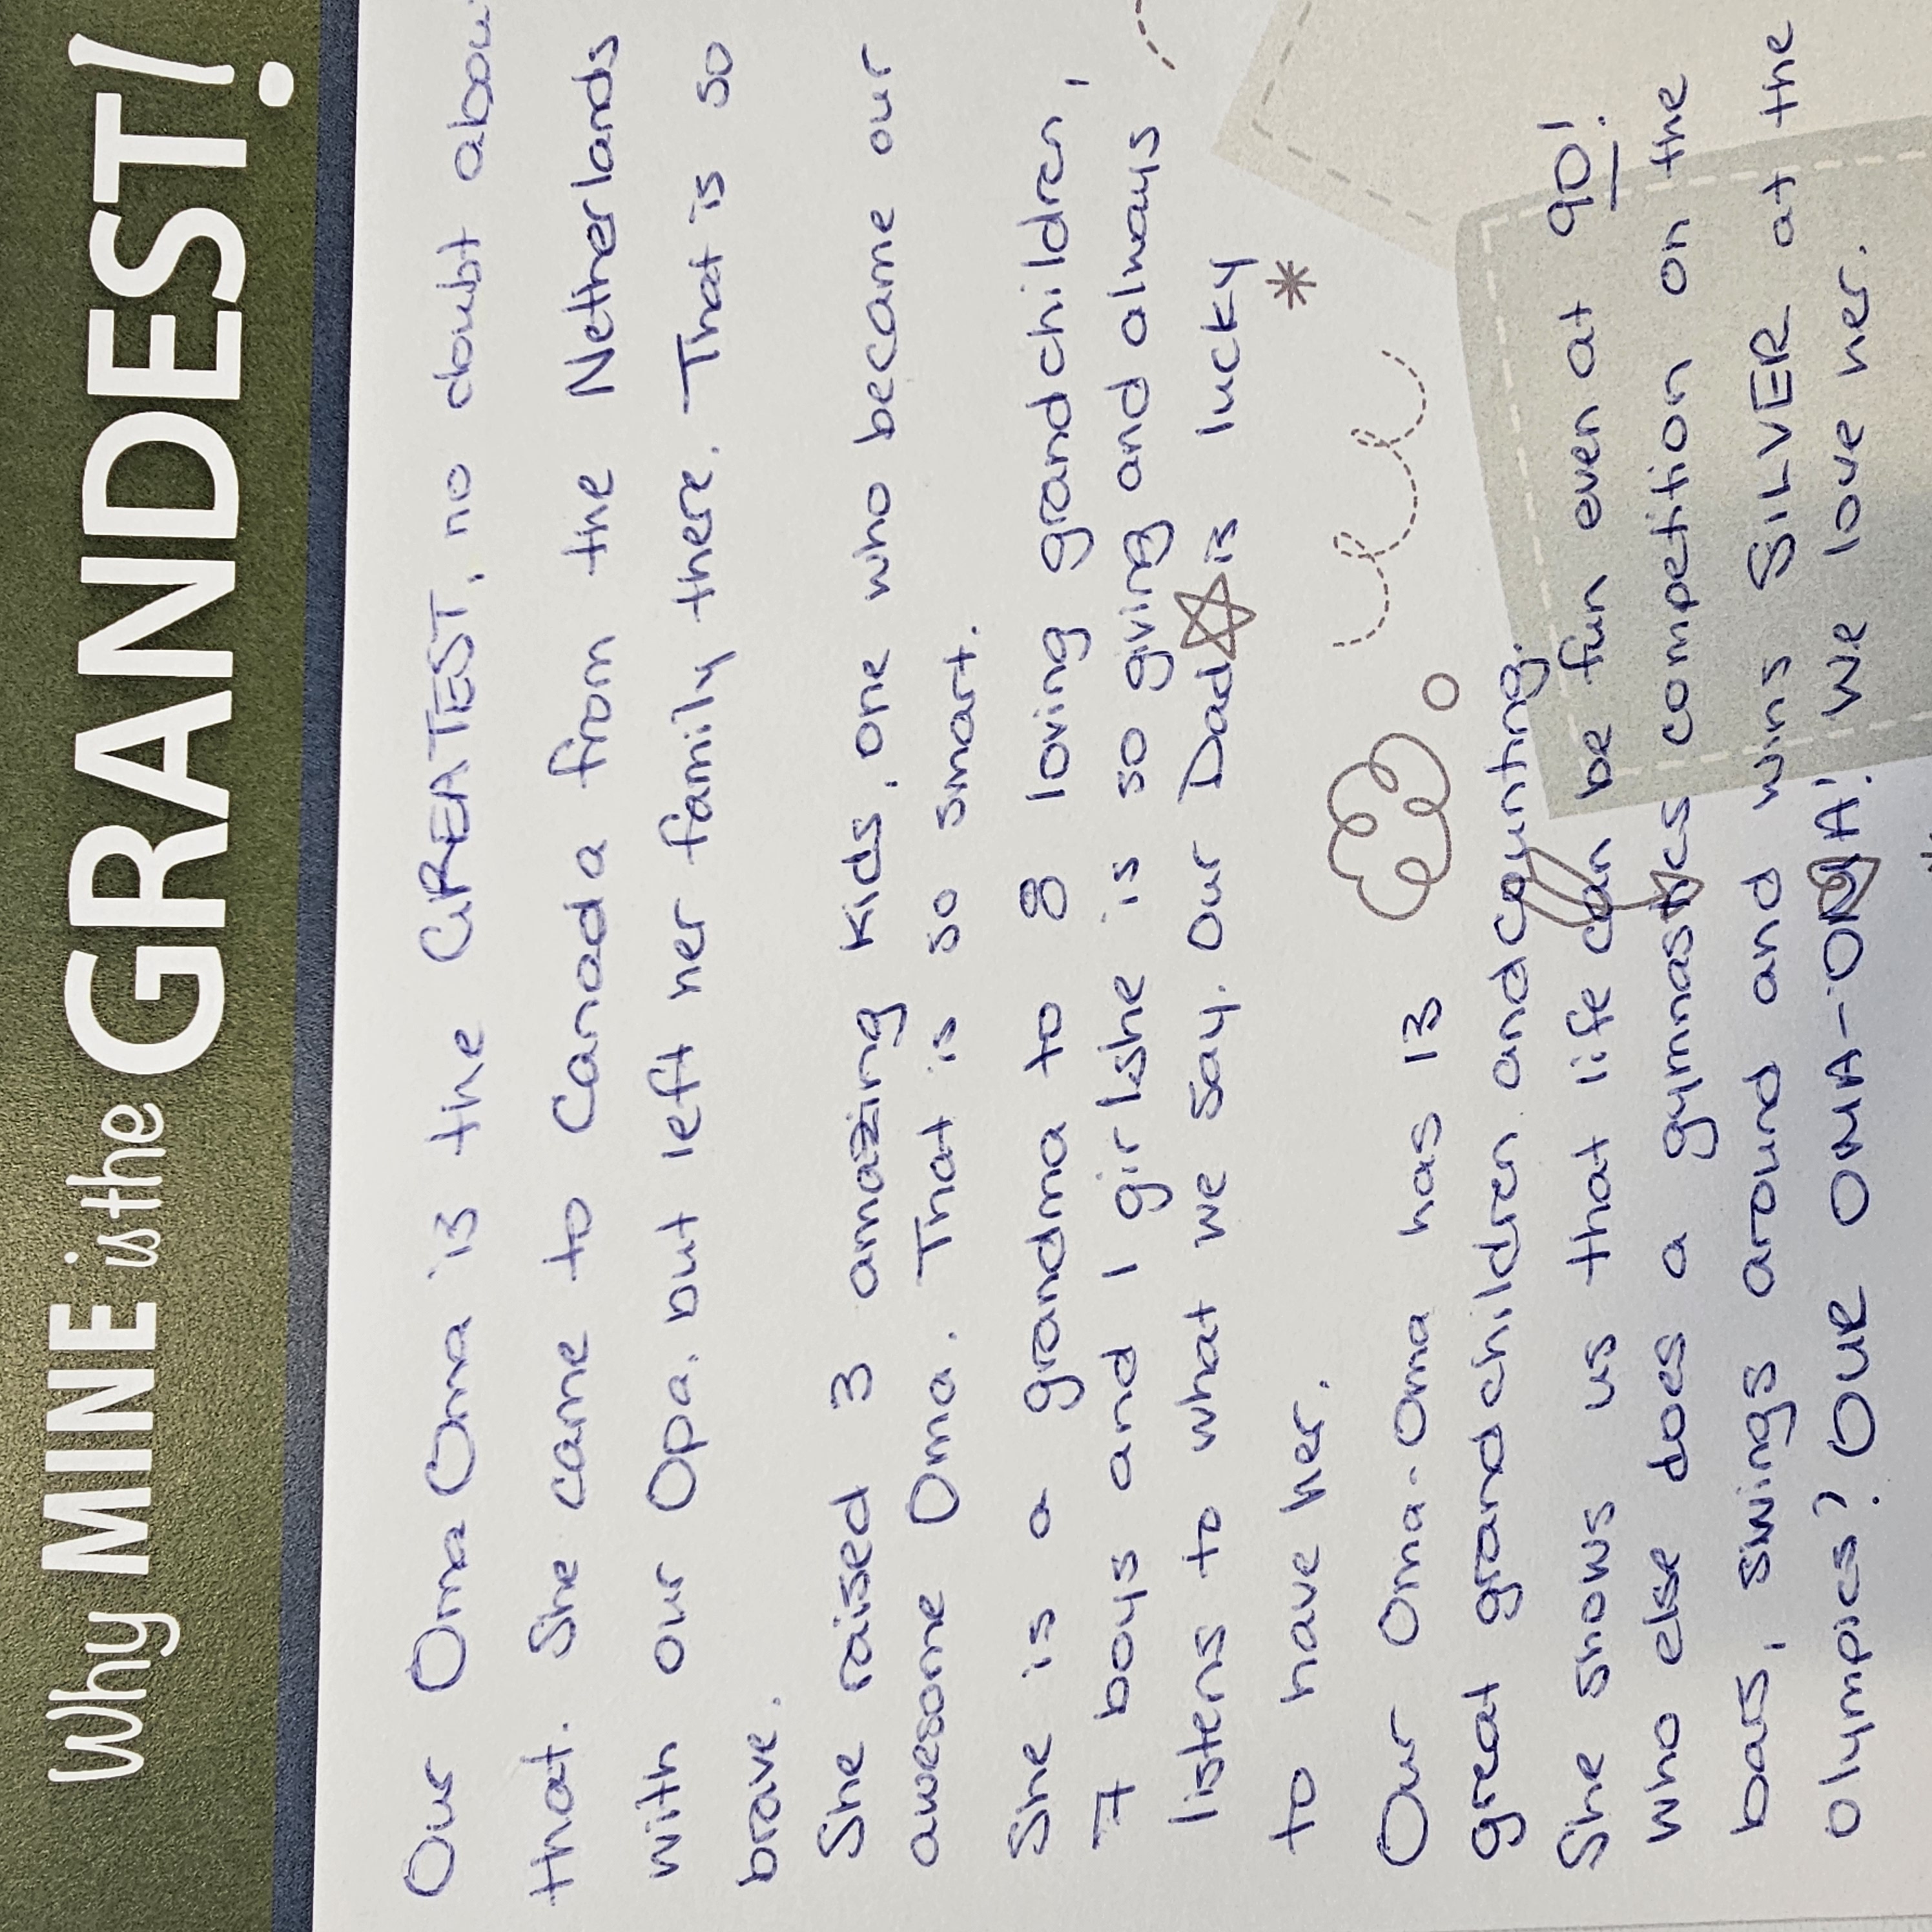 Why MINE is the GRANDEST!
Our Oma Oma is the GREATEST, no doubt about
that. She came to Canada from the Netherlands
with our Opa. but left her family there. That is so
brave.
She raised 3 amazing kids, one who became our
awesome Oma. That is so smart.
She is a grandma to 8 loving grandchildren,
7 boys and 1 girl. she is so giving and always
listens to what we say. Our Dad is lucky
to have her.
Our Oma-Oma has 13
great grandchildren and counting.
She shows us that life can be fun even at 90!
Who else does a gymnastics competition on the
bars, swings around and wins SILVER at the
Olympics? OUR OMA-OMA! We love her.